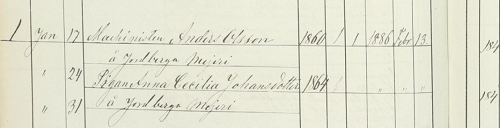 1 Jan 17 Machinisten Anders Olsson 1860 1 1 1886 Febr 13 184
å Jordberga Mejeri
" 24 Pigan Anna Cecilia Johansdotter 1864 " " " 184
" 31 å Jordberga Mejeri